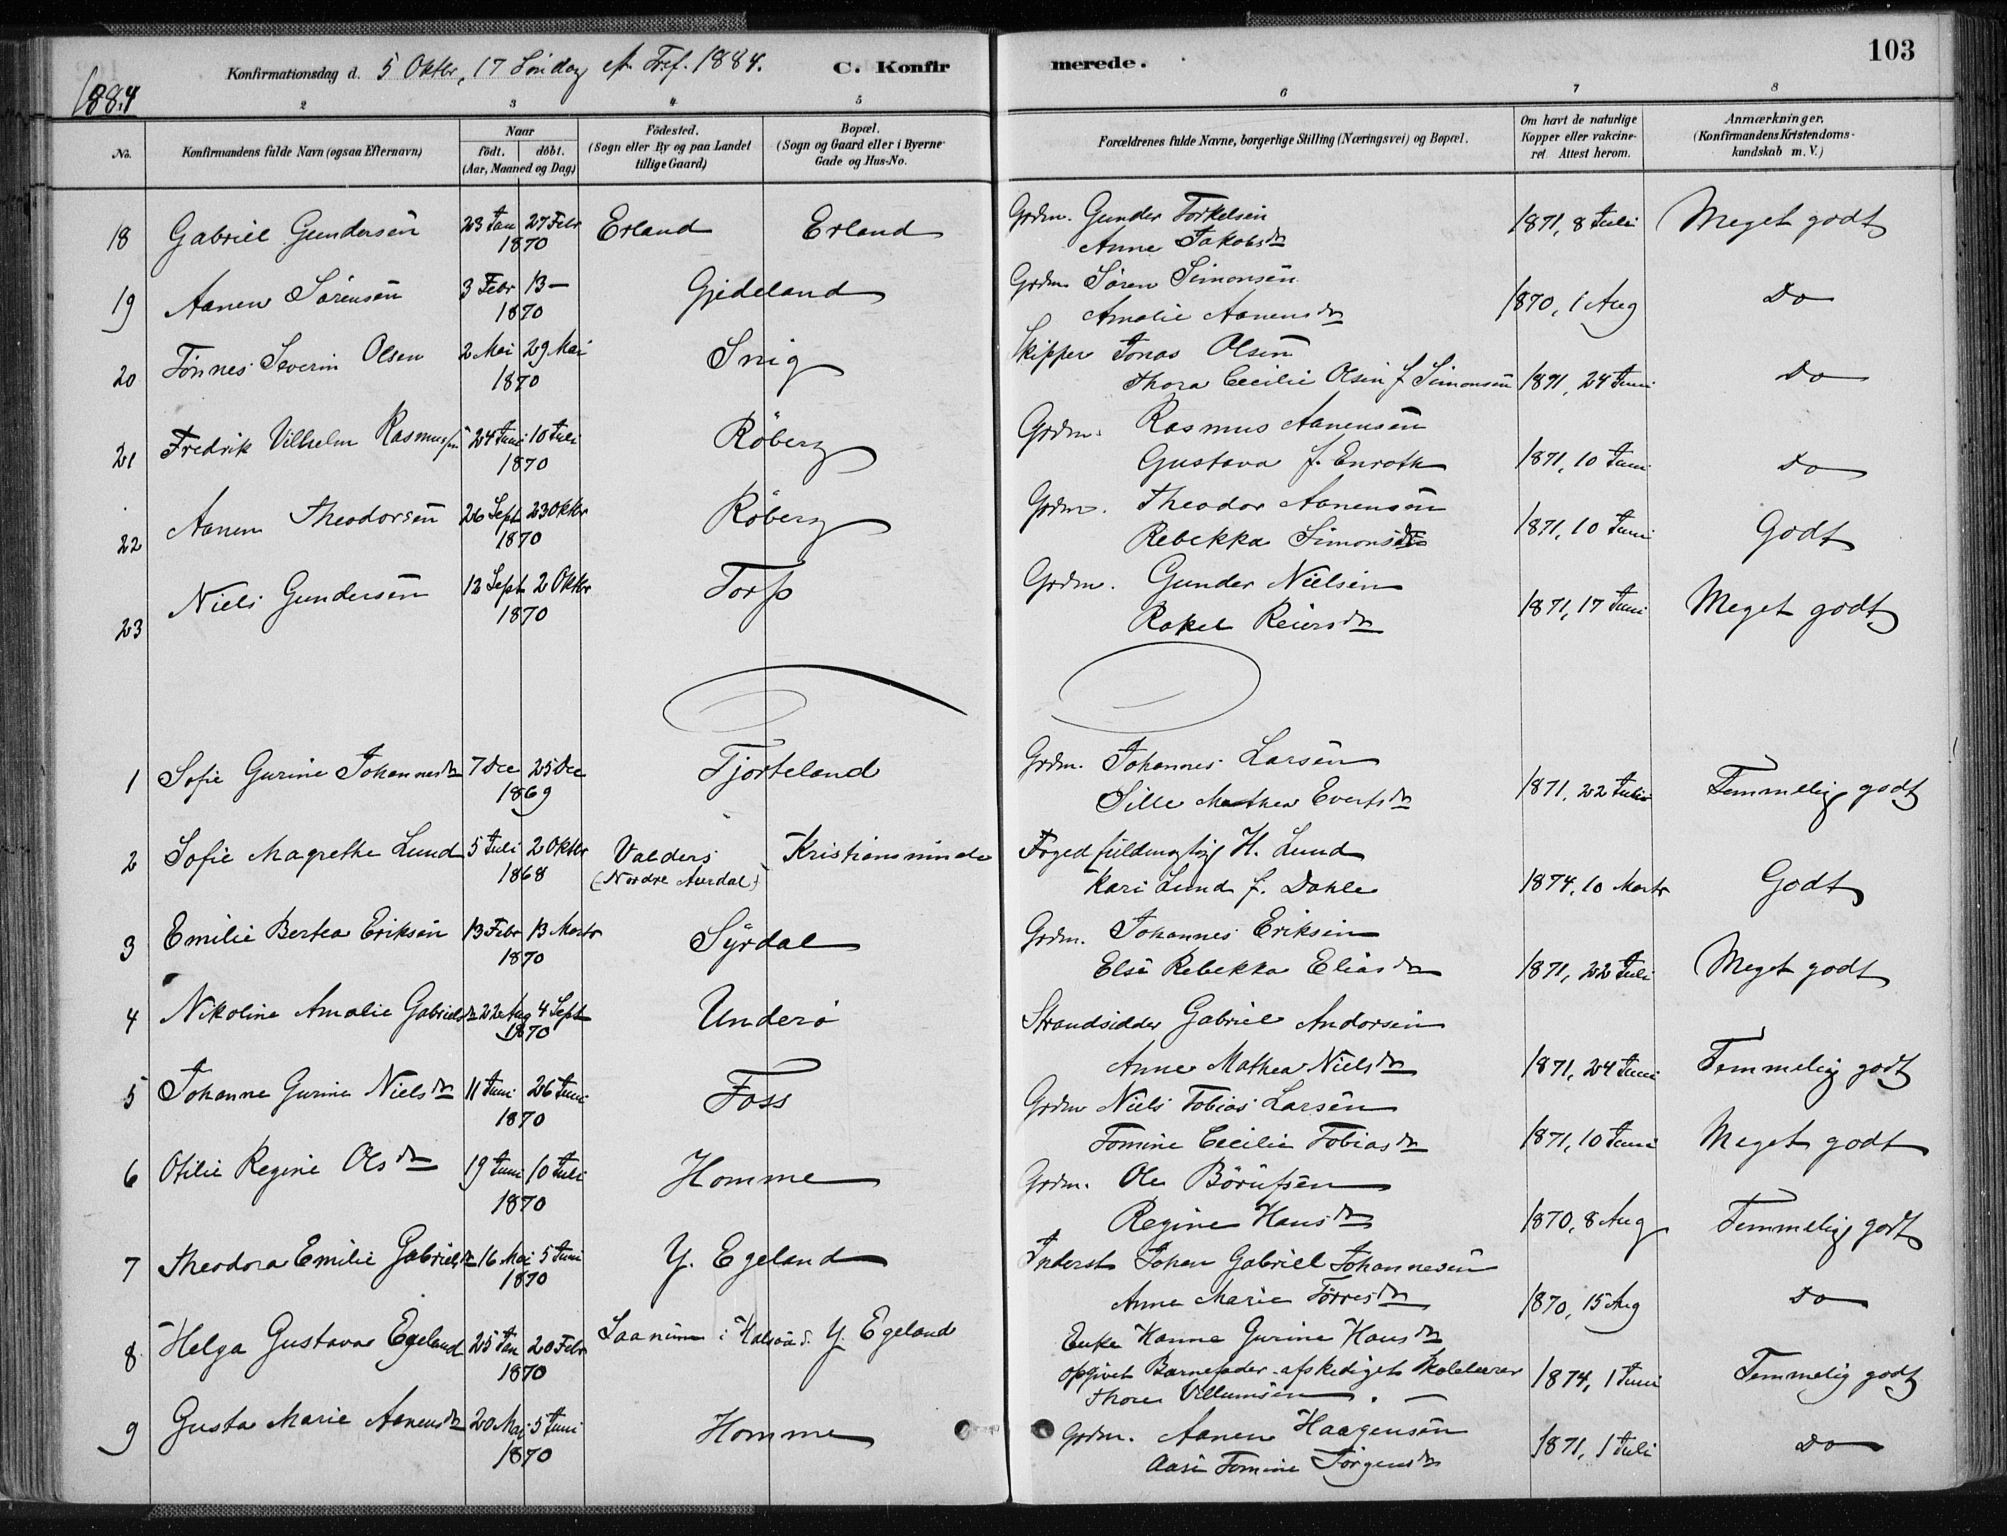 1884
Konfirmationsdag d. 5 Oktbr, 17 Søndag eft. Tref. 1884. C. Konfir merede. 103
2 3 4 5 6 7 8
No. Konfirmandens fulde Navn (ogsaa Efternavn) Naar født. døbt. (Aar, Maaned og Dag.) Fødested. (Sogn eller By og paa Landet tillige Gaard.) Bopæl. (Sogn og Gaard eller i Byerne Gade og Hus-No. Forældrenes fulde Navne, borgerlige Stilling (Næringsvei) og Bopæl. Om havt de naturlige Kopper eller vakcineret. Attest herom. Anmærkninger. (Konfirmandens Kristendomskundskab m. V.)
18 Gabriel Gundersen 23 Jan 27 Febr 1870 Erland Erland Grdm. Gunder Torkelsen 1871, 8 Juli Meget godt
Anne Jakobsdtr
19 Aanen Sørensen 3 Febr 13 — 1870 Gjedeland Grdm Søren Simonsen 1870, 1 Aug Do
Amalie Aanensdtr
20 Tønnes Severin Olsen 2 Mai 29 Mai 1870 Snig Skipper Jonas Olsen
Thora Cecilie Olsen f. Simonsen 1871, 24 Juni Do
21 Fredrik Vilhelm Rasmussen 24 Juni 10 Juli 1870 Røberg Grdm. Rasmus Aanensen
Gustava f. Enroth 1871, 10 Juni Do
22 Aanen Theodorsen 26 Sept 23 Oktbr 1870 Røberg Grdm. Theodor Aanensen 1871, 10 Juni Godt
Rebekka Simonsdtr
23 Niels Gundersen 12 Sept 2 Oktbr 1870 Torp Grdm. Gunder Nielsen 1871, 17 Juni Meget godt
Rakel Reiersdtr
1 Sofie Gurine Johannesdtr 7 Dec 25 Dec 1869 Fjorteland Grdm. Johannes Larsen
Sille Mathea Evertsdtr 1871, 22 Julio Temmelig godt
2 Sofie Magrethe Lund 5 Juli 2 Oktbr 1868 Valders (Nordre Aurdal) Kristiansminde Fogedfuldmægtig H. Lund
Kari Lund f. Dahle 1874, 10 Marts Godt
3 Emilie Bertea Eriksen 13 Febr 13 Marts 1870 Syrdal Grdm. Johannes Eriksen
Else Rebekka Eliasdtr 1871, 22 Juli Meget godt
4 Nikoline Amalie Gabrielsdtr 22 Aug 4 Sept 1870 Underø Strandsidder Gabriel Andersen
Anne Mathea Nielsdtr 1871, 24 Juni Temmelig godt
5 Johanne Gurine Nielsdtr 11 Juni 26 Juni 1870 Foss Grdm Niels Tobias Larsen
Tomine Cecilie Tobiasdtr 1871, 10 Juni Meget godt
6 Otilie Regine Olsdtr 19 Juni 10 Juli 1870 Homme Grdm. Ole Børufsen
Regine Hansdtr 1870, 8 Aug Temmelig godt
7 Theodora Emilie Gabrielsdtr 16 Mai 5 Juni 1870 Y. Egeland Inderst Johan Gabriel Johannesen
Anne Marie Tørresdtr 1870, 15 Aug Do
8 Helga Gustava Egeland 25 Jan 20 Febr 1870 Saanum i Halsaa S. Y. Egeland Enke Hanne Gurine Hansdtr
opgivet Barnefader afskediget Skolelærer 1874, 1 Juni Temmelig godt
Thore Villumsen
9 Gusta Marie Aanensdtr 20 Mai 5 Juni 1870 Homme Grdm. Aanen Haagensen 1871, 1 Juli Do
Aase Tomine Jørgensdtr